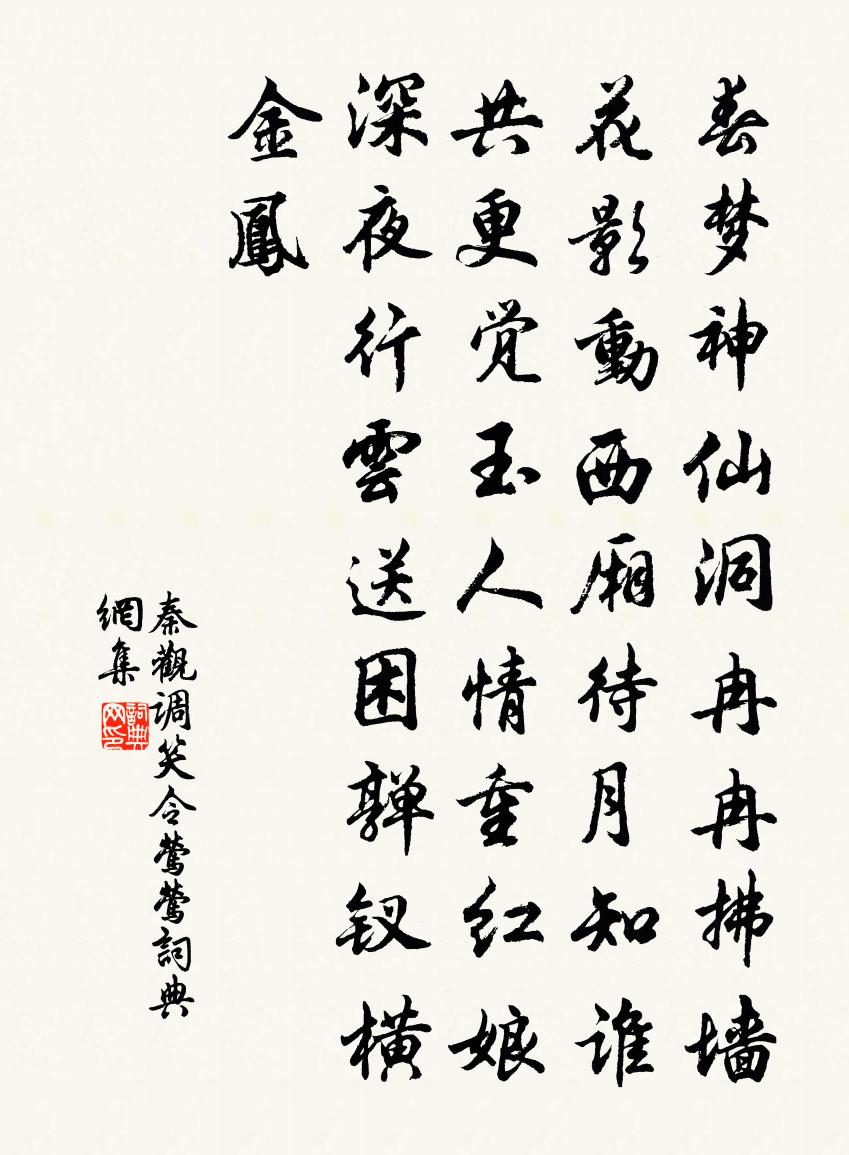 春梦神仙洞冉冉拂墙
花影動西厢待月知谁
共更觉玉人情重红娘
深夜行雲送困嚲钗横
金鳳
秦觀调笑令鶯鶯詞典
網集
詞典
网印